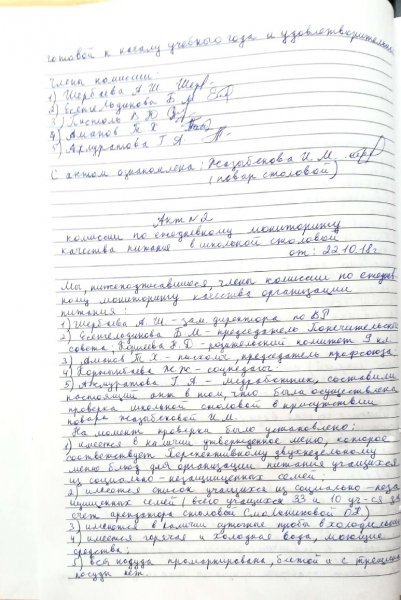 готовой к началу учебного года и удовлетворительн
Члены комиссии:
1) Шербаева А.Ш.
2) Есенгельдинова Б.М.
3)
4) Аманов Т.Х.
5) Ажмуратова Г.А.
С актом ознакомлена: Жазыбекова И.М.
(повар столовой)
Акт №2
комиссии по ежедневному мониторингу
качества питания в школьной столовой
от: 22.10.18г.
Мы, нижеподписавшиеся, члены комиссии по ежедн
ному мониторингу качества организации
питания:
1) Шербаева А.Ш - зам. директора по ВР
2) Есенгельдинова Б.М - председатель Попечительского
совета; Н.Д - родительский комитет 9 кл.
3) Аманов Т.Х - председатель профсоюза
4) Ж.К - соцпедагог
5) Ажмуратова Г.А - медработник, составили
настоящий акт в том, что была осуществлена
проверка школьной столовой в присутствии
повара Жазыбековой И.М.
На момент проверки было установлено:
1) имеется в наличии утвержденное меню, которое
соответствует Перспективному двухнедельному
меню блюд для организации питания учащихся
из социально-незащищенных семей
2) имеется список учащихся из социально-неза
щищенных семей (всего учащихся 33 и 10 уч-ся за
счет арендатора столовой
3) имеются в наличии суточные пробы в холодильн
4) имеется горячая и холодная вода, моющие
средства;
5) вся посуда промаркирована, битой и с трещин
посуды нет.